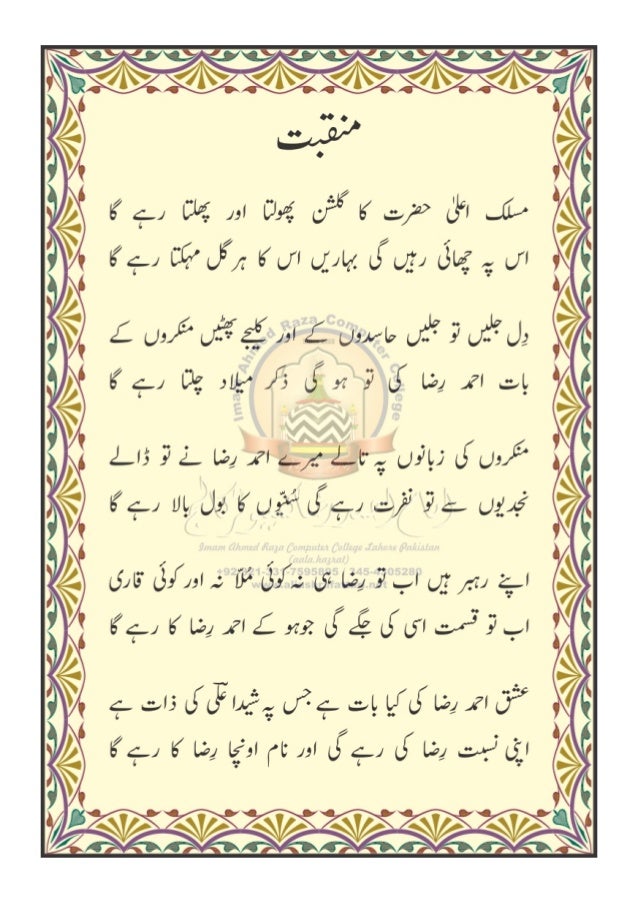 منقبت
مسلک اعلیٰ حضرت کا گلشن پھولتا اور پھلتا رہے گا
اس پہ چھائی رہیں گی بہاریں اس کا ہر گل مہکتا رہے گا
دِل جلیں تو جلیں حاسدوں کے اور کلیجے پھٹیں منکروں کے
بات احمد رِضا کی تو ہو گی ذکر میلاد چلتا رہے گا
منکروں کی زبانوں پہ تالے میرے احمد رِضا نے تو ڈالے
نجدیوں سے تو نفرت رہے گی سُنّیوں کا بول بالا رہے گا
Imam Ahmed Raza Computer College Lahore Pakistan
(aala.hazrat)
اپنے رہبر ہیں اب تو رِضا ہی نہ کوئی مُلّاں نہ اور کوئی قاری
اب تو قسمت اسی کی جگے گی جوہو کے احمد رِضا کا رہے گا
عشق احمد رِضا کی کیا بات ہے جس پہ شیدا علیؓ کی ذات ہے
اپنی نسبت رِضا کی رہے گی اور نام اونچا رِضا کا رہے گا
Imam Ahmed Raza Computer College